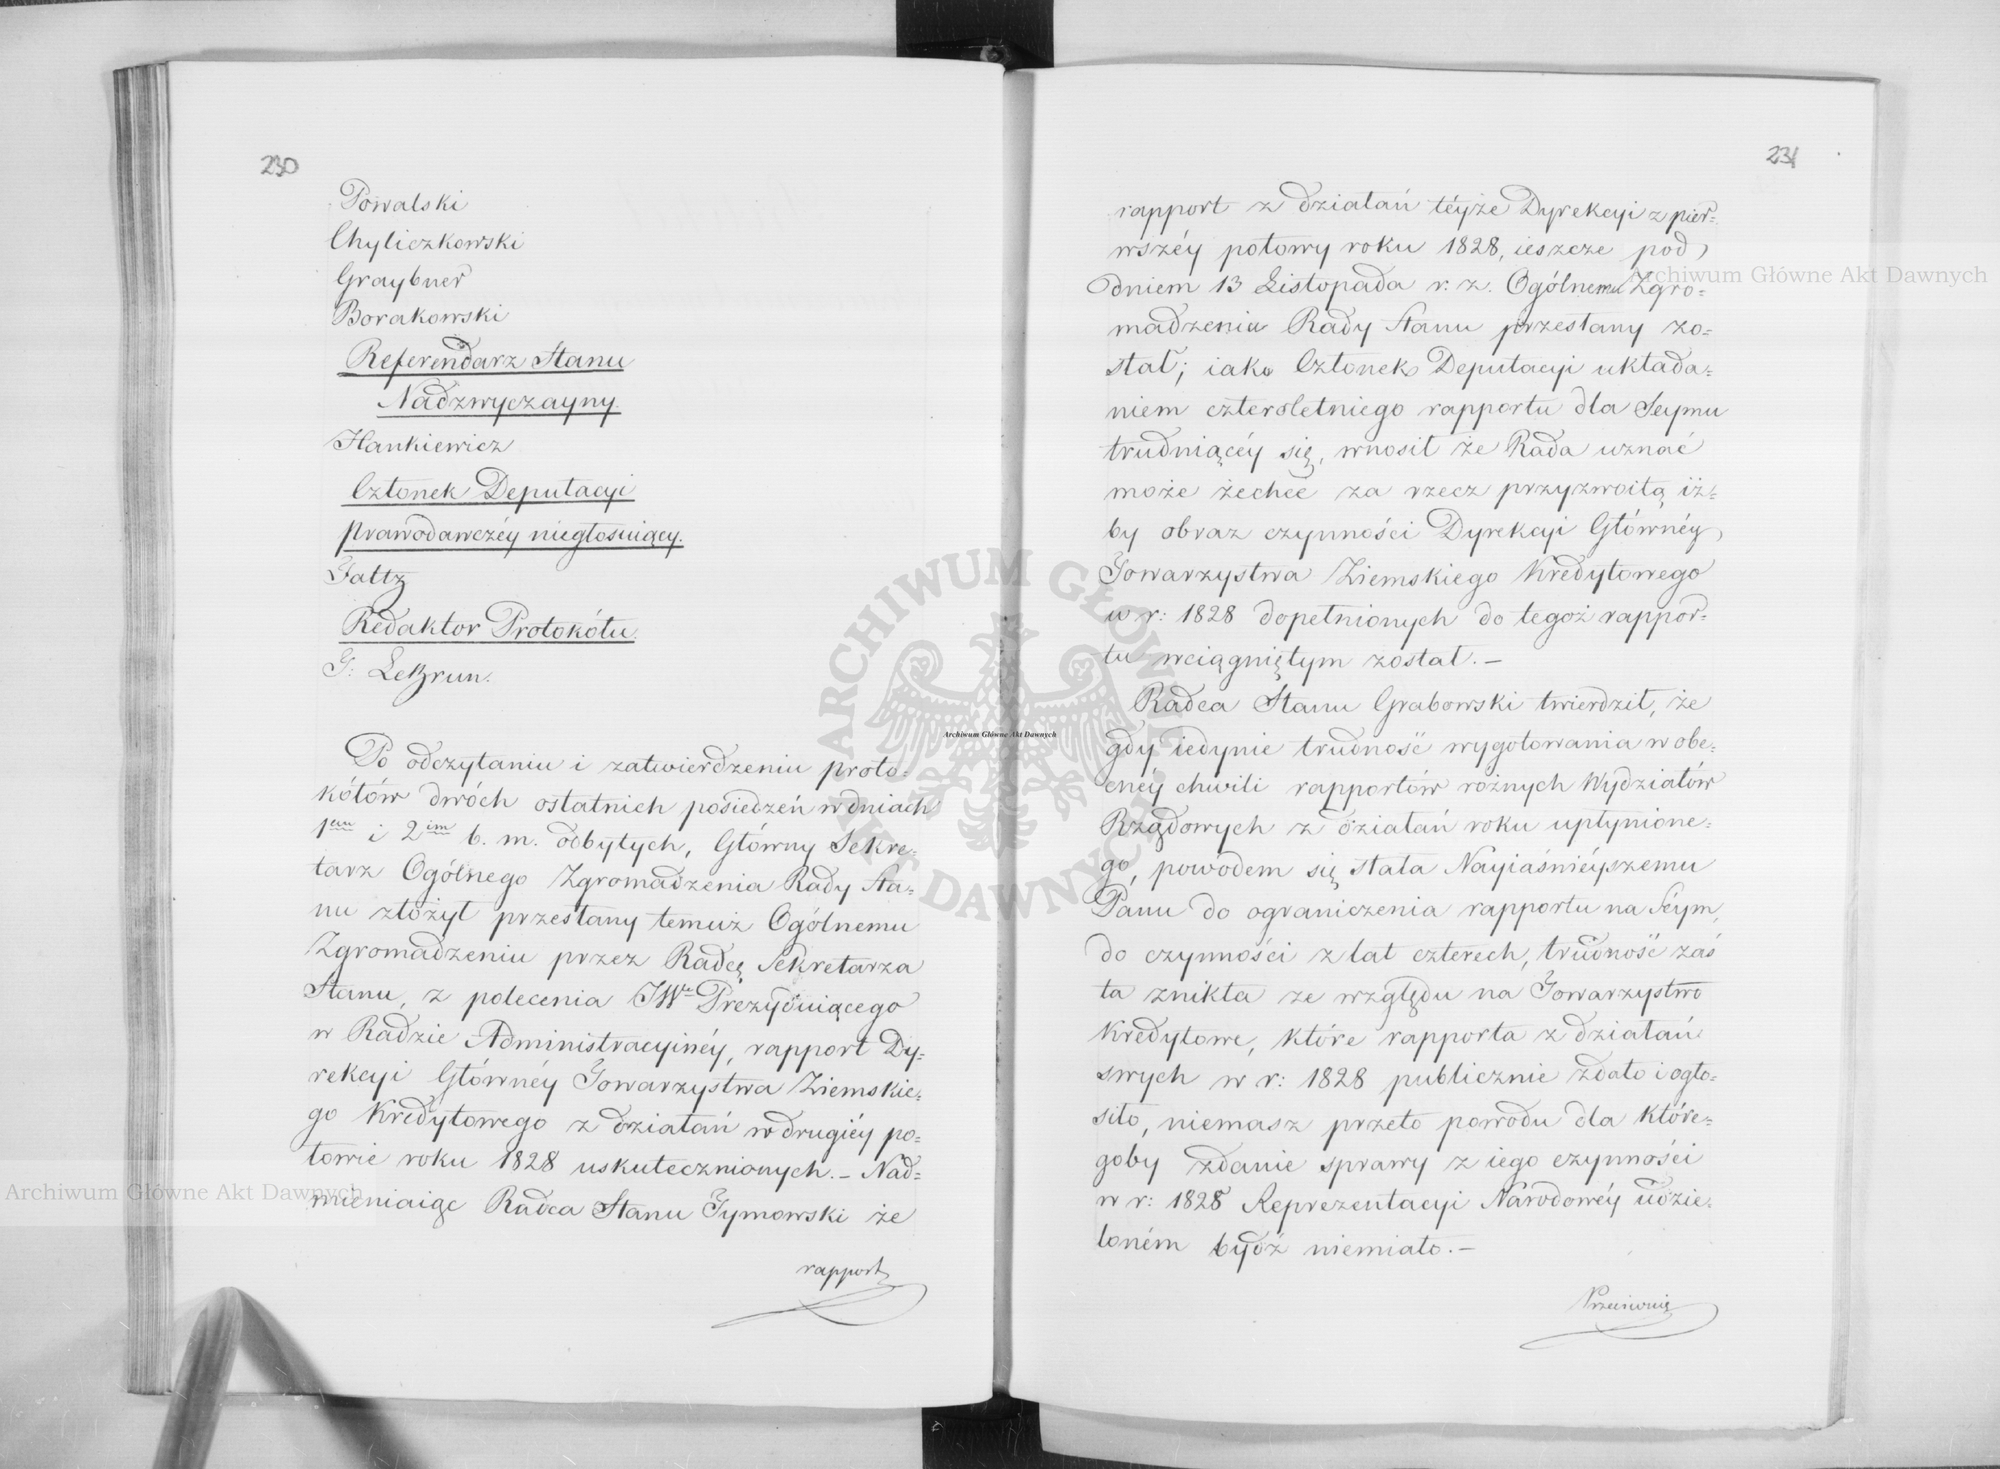 230
Powalski
Chyliczkowski
Graybner
Borakowski
Referendarz Stanu
Nadzwyczayny.
Hankiewicz
Członek Deputacyi
Prawodawczéy niegłosuiący.
Faltz
Redaktor Protokółu.
G: LeBrun.
Po odczytaniu i zatwierdzeniu proto=
kółów dwóch ostatnich posiedzeń w dniach
1ym i 2im b. m. odbytych, Główny Sekre=
tarz Ogólnego Zgromadzenia Rady Sta=
nu złożył przesłany temuż Ogólnemu
Zgromadzeniu przez Radcę Sekretarza
Stanu, z polecenia JWo Prezyduiącego
w Radzie Administracyinéy, rapport Dy=
rekcyi Główney Towarzystwa Ziemskie=
go Kredytowego z działań w drugiéy po=
łowie roku 1828 uskutecznionych. – Nad=
mieniaiąc Radca Stanu Tymowski że
rapport
231
rapport z działań téyże Dyrekcyi z pier=
wszéy połowy roku 1828, ieszcze pod
dniem 13 Listopada r. z. Ogólnemu Zgro=
madzeniu Rady Stanu przesłany zo=
stał; iako Członek Deputacyi układa=
niem czteroletniego rapportu dla Seymu
trudniącéy się, wnosił że Rada uznać
może zechce za rzecz przyzwoitą iż=
by obraz czynności Dyrekcyi Głównéy
Towarzystwa Ziemskiego Kredytowego
w r: 1828 dopełnionych do tegoż rappor=
tu wciągniętym został. –
Radca Stanu Grabowski twierdził, że
gdy iedynie trudność wygotowania w obe=
cnéy chwili rapportów różnych Wydziałów
Rządowych z działań roku upłynione=
go, powodem się stała Nayiaśnieyszemu
Panu do ograniczenia rapportu na Séym,
do czynności z lat czterech, trudność zaś
ta znikła ze względu na Towarzystwo
Kredytowe, które rapporta z działań
swych w r: 1828 publicznie zdało i ogło=
siło, niemasz przeto powodu dla które=
goby zdanie sprawy z iego czynności
w r: 1828 Reprezentacyi Narodowéy udzie=
loném bydź niemiało. –
Przeciwnie
Archiwum Główne Akt Dawnych
Archiwum Główne Akt Dawnych
Archiwum Główne Akt Dawnych
ARCHIWUM GŁÓWNE AKT DAWNYCH